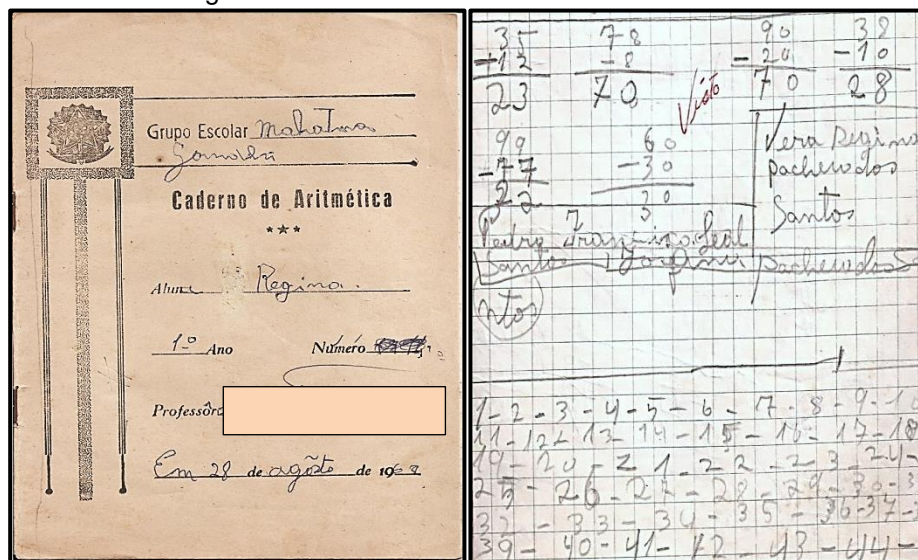 Grupo Escolar Mahatma
Gandhi
Caderno de Aritmética
Aluno Regina.
1º Ano Número
Professôra
Em 28 de agôsto de 196
35 78 90 38
-12 -8 -20 -10
23 70 70 28
Visto
99 60
-77 -30
22 30
Vera Regina
pacheco dos
Santos
Santos pacheco dos Sa
ntos
1-2-3-4-5-6-7-8-9-10
11-12-13-14-15-16-17-18
19-20-21-22-23-24-
25-26-27-28-29-30-3
32-33-34-35-36-37-
39-40-41-42-43-44-